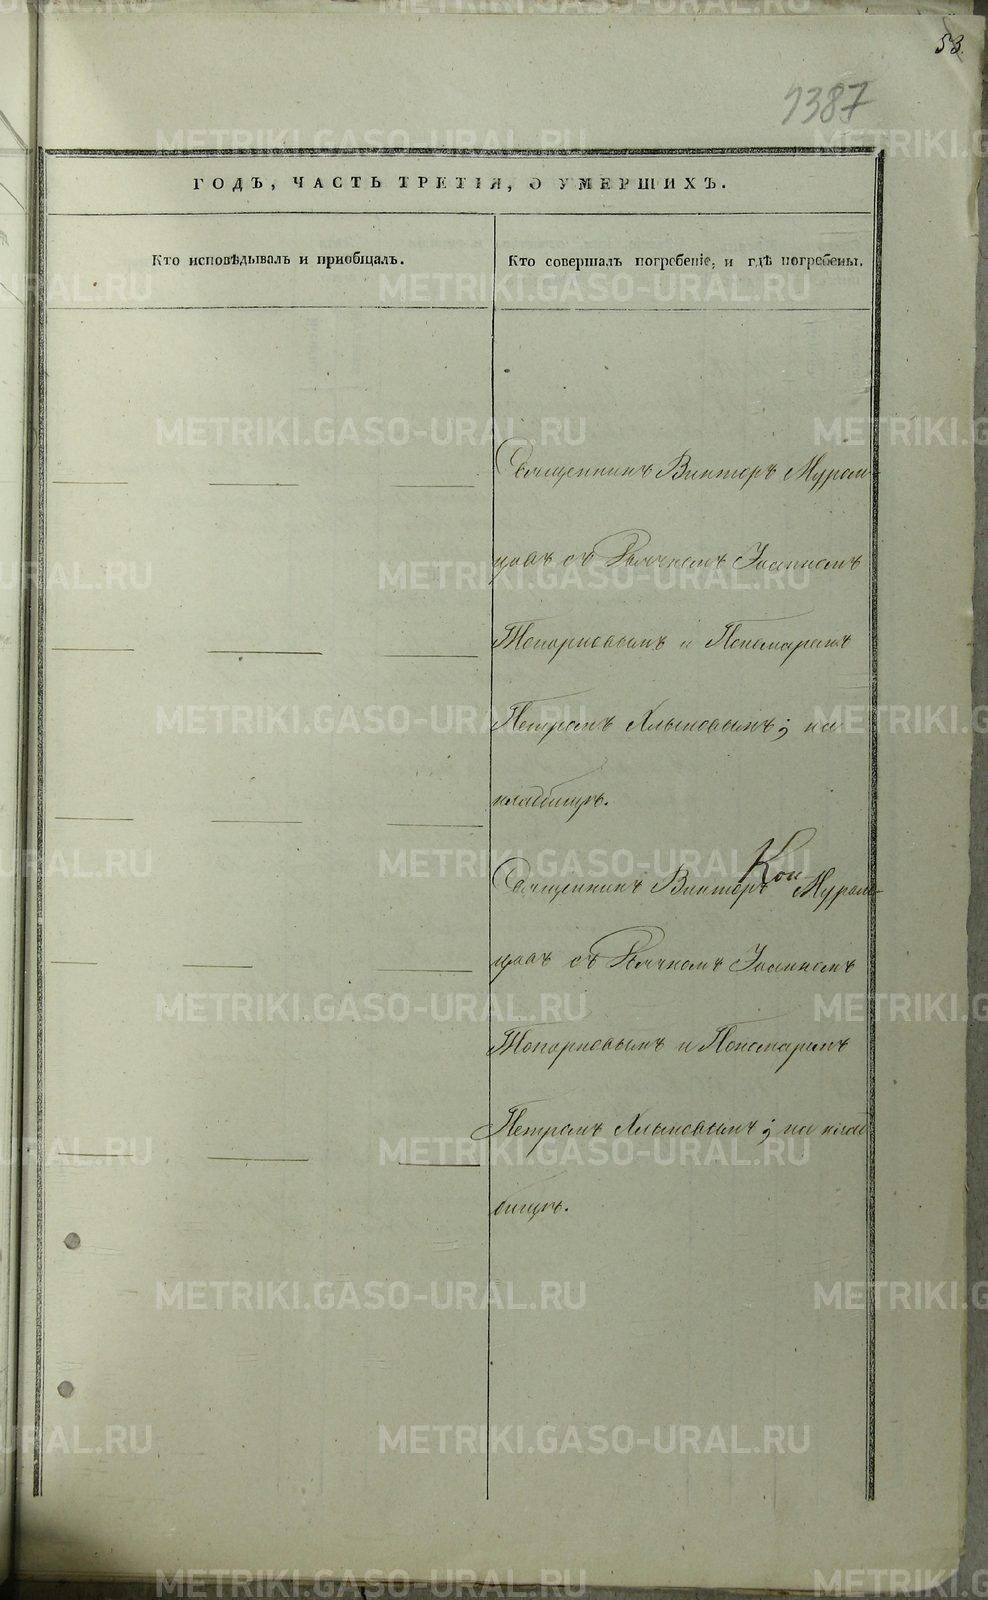 53.
1387
ГОДЪ, ЧАСТЬ ТРЕТІЯ, О УМЕРШИХЪ.
Кто исповѣдывалъ и пріобщалъ.
Кто совершалъ погребеніе, и гдѣ погребены.
Священникъ Викторъ Муром-
цовъ съ Дьячкомъ Іоанномъ
Топорковымъ и Пономаремъ
Петромъ Хлыновымъ; на
кладбищѣ.
Кон
Священникъ Викторъ Муром-
цовъ съ Дьячкомъ Іоанномъ
Топорковымъ и Пономаремъ
Петромъ Хлыновымъ; на клад
бищѣ.
METRIKI.GASO-URAL.RU